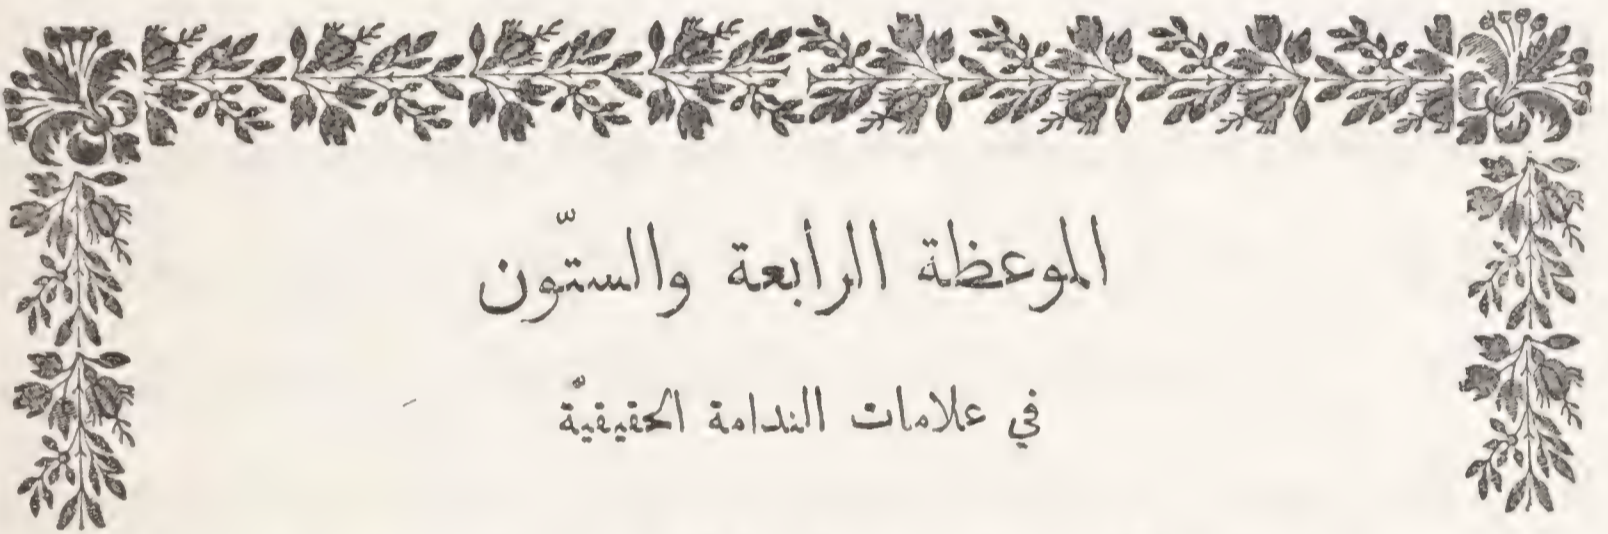 الموعظة الرابعة والستّون
في علامات الندامة الحقيقيّة